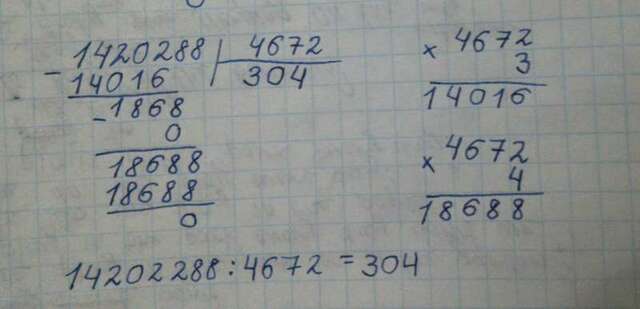 1420288 | 4672
- 14016 | 304
- 1868
0
18688
18688
0
× 4672
3
14016
× 4672
4
18688
14202288 : 4672 = 304